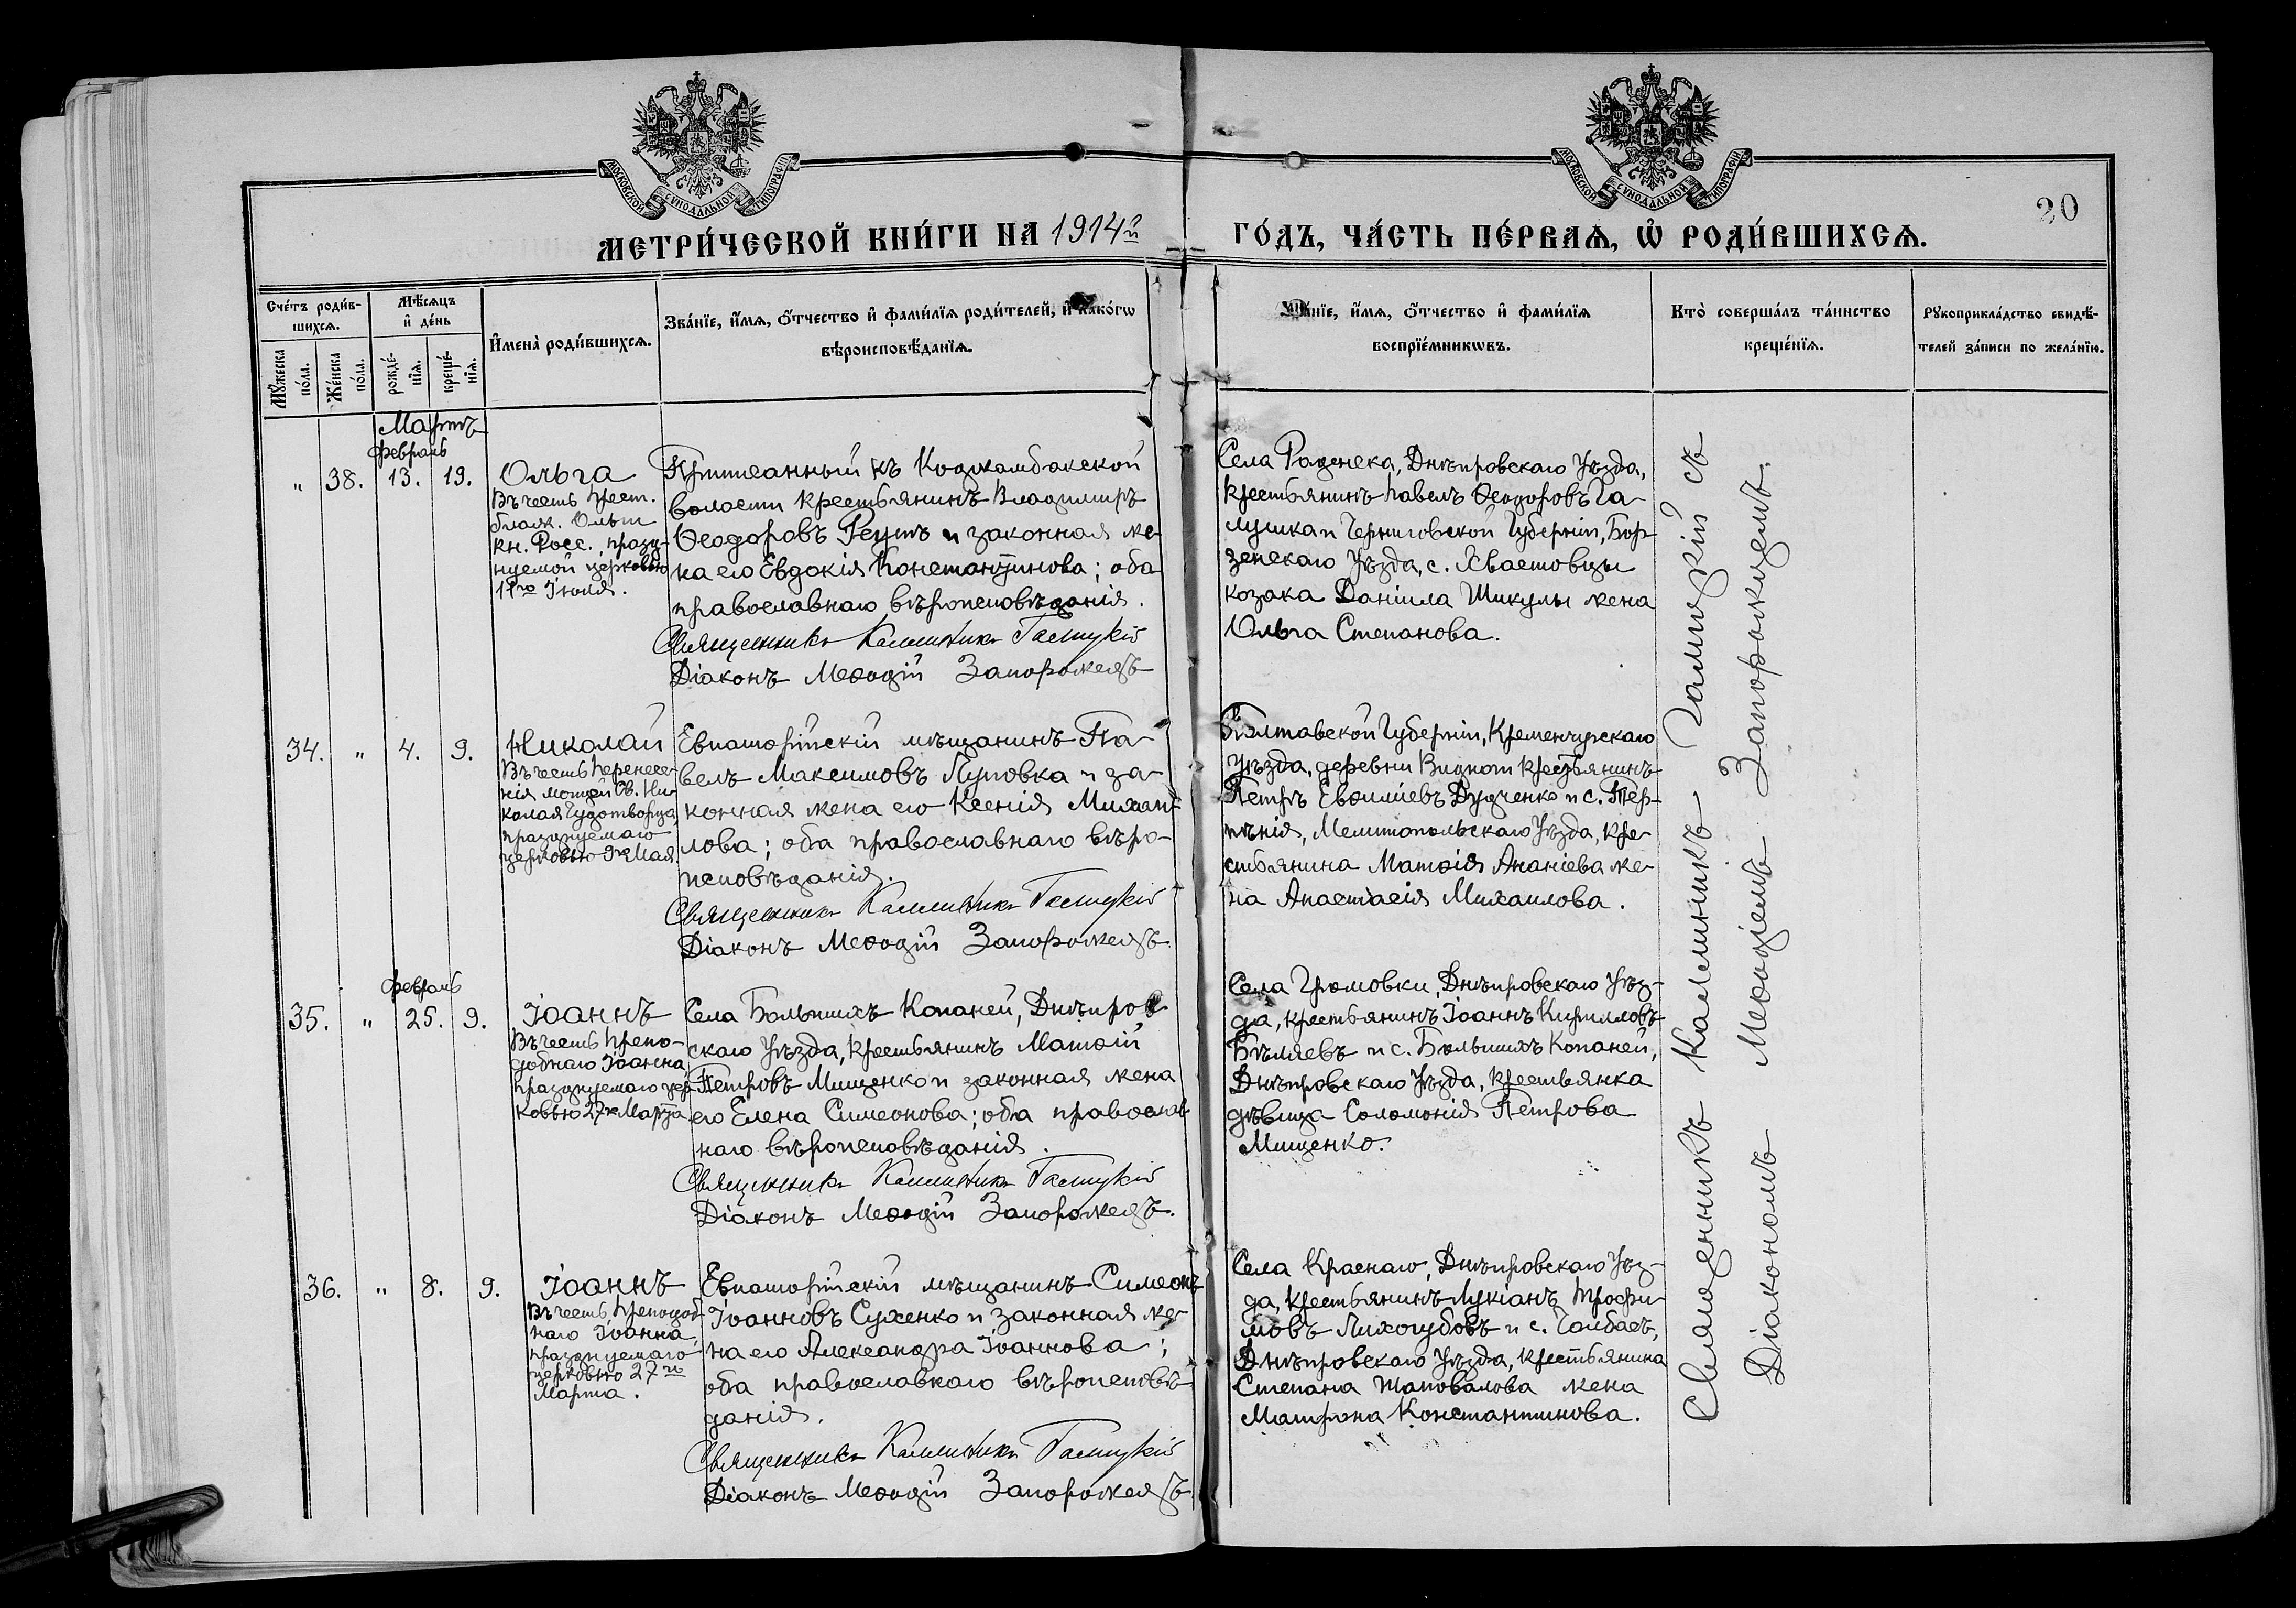 МОСКОВСКОЙ СѴНОДАЛЬНОЙ ТИПОГРАФІИ
МОСКОВСКОЙ СѴНОДАЛЬНОЙ ТИПОГРАФІИ
20
МЕТРИ́ЧЕСКОЙ КНИ́ГИ НА 1914й ГО́ДЪ, ЧА́СТЬ ПЕ́РВАѦ, Ѡ҆ РОДИ́ВШИХСѦ.
Сче́тъ роди́в-
шихсѧ.
Мꙋ́жеска
по́ла.
Же́нска
по́ла.
Мѣ́сѧцъ
и҆ де́нь
рожде́-
нїѧ.
креще́-
нїѧ.
И҆мена̀ роди́вшихсѧ.
Зва́нїе, и҆́мѧ, ѻ҆́тчество и҆ фами́лїѧ роди́телей, и҆ како́гѡ
вѣроисповѣ́данїѧ.
Зва́нїе, и҆́мѧ, ѻ҆́тчество и҆ фами́лїѧ
воспрїе́мникѡвъ.
Кто̀ соверша́лъ та́инство
креще́нїѧ.
Рꙋкоприкла́дство свидѣ́-
телей за́писи по жела́нїю.
Мартъ
Февраль
" 38. 13. 19.
Ольга
Въ честь
блаж. Ольги
кн. Росс., празд-
нуемой церковью
11го Іюля.
къ Коджамбакской
волости крестьянинъ Владимиръ
Ѳеодоровъ Реутъ и законная же-
на его Евдокія Константинова; оба
православнаго вѣроисповѣданія.
Священникъ Каллиникъ Галицкій
Діаконъ Меѳодій Запорожецъ
Села Раденска, Днѣпровскаго Уѣзда,
крестьянинъ Павелъ Ѳеодоровъ Га-
лушка и Черниговской Губерніи, Бор-
зенскаго Уѣзда, с. Хвастовцы
козака Даніила Шикулы жена
Ольга Степанова.
34. " 4. 9.
Николай
Въ честь перенесе-
нія мощей Св. Ни-
колая Чудотворца,
празднуемаго
церковью 9го Мая.
Евпаторійскій мѣщанинъ Па-
велъ Максимовъ Луговка и за-
конная жена его Ксенія Михаи-
лова; оба православнаго вѣро-
исповѣданія.
Священникъ Каллиникъ Галицкій
Діаконъ Меѳодій Запорожецъ.
Полтавской Губерніи, Кременчугскаго
Уѣзда, деревни крестьянинъ
Петръ Евѳиміевъ Дудченко и с. Тер-
пѣнія, Мелитопольскаго Уѣзда, кре-
стьянина Матѳія Ананіева же-
на Анастасія Михаилова.
Февраль
35. " 25. 9.
Іоаннъ
Въ честь Препо-
добнаго Іоанна,
празднуемаго цер-
ковью 27го Марта
Села Большихъ Копаней, Днѣпров-
скаго Уѣзда, крестьянинъ Матѳій
Петровъ Мищенко и законная жена
его Елена Симеонова; оба православ-
наго вѣроисповѣданія.
Священникъ Каллиникъ Галицкій
Діаконъ Меѳодій Запорожецъ.
Села Громовки, Днѣпровскаго Уѣз-
да, крестьянинъ Іоаннъ Кирилловъ
Бѣляевъ и с. Большихъ Копаней,
Днѣпровскаго Уѣзда, крестьянка
дѣвица Соломонія Петрова
Мищенко.
36. " 8. 9.
Іоаннъ
Въ честь Преподоб-
наго Іоанна,
празднуемаго
церковью 27го
Марта.
Евпаторійскій мѣщанинъ Симеонъ
Іоанновъ Сухенко и законная же-
на его Александра Іоаннова;
оба православнаго вѣроисповѣ-
данія.
Священникъ Каллиникъ Галицкій
Діаконъ Меѳодій Запорожецъ.
Села Краснаго, Днѣпровскаго Уѣз-
да, крестьянинъ Лукіанъ Трофи-
мовъ Лихогубовъ и с. Чалбасъ,
Днѣпровскаго Уѣзда, крестьянина
Степана Шаповалова жена
Матрона Константинова.
Священникъ Каллиникъ Галицкій съ
Діакономъ Меѳодіемъ Запорожцемъ.